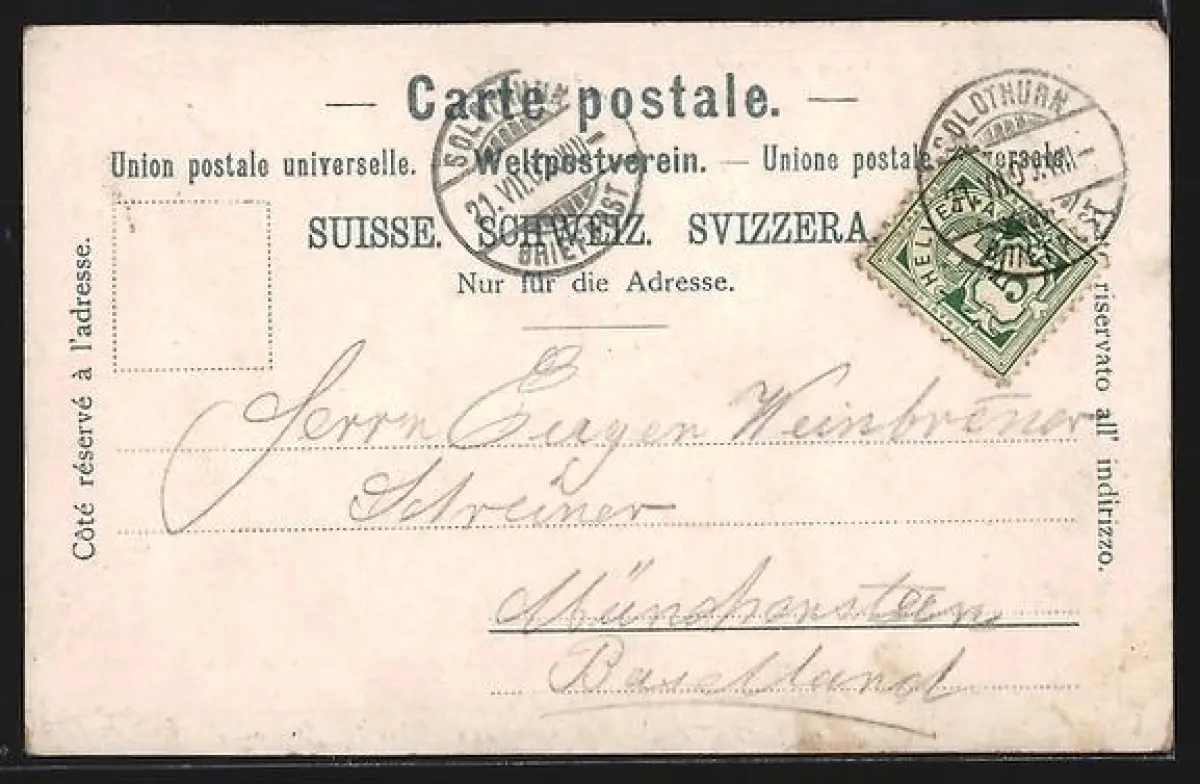 — Carte postale. —
Union postale universelle. — Weltpostverein. — Unione postale
SUISSE. SCHWEIZ. SVIZZERA
Nur für die Adresse.
Côté réservé à l'adresse.
riservato all' indirizzo.
SOLOTHURN
21.VII
BRIEF
SOLOTHURN
HELVETIA
5
Herrn Eugen Weinbrener
Schreiner
Münchenstein
Baselland